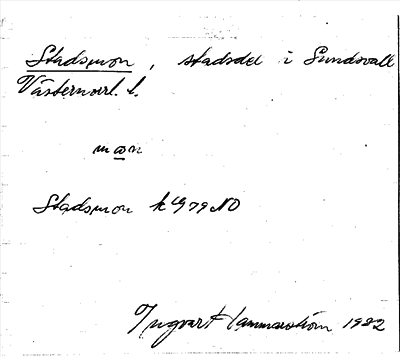 Stadsmon, stadsdel i Sundsvall
Västernorrl. l.
mωn
Stadsmon k 1979 NO
Ingvar Hammarström 1982